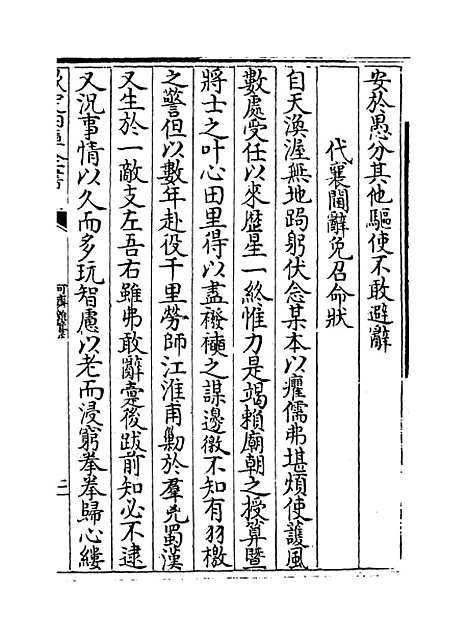 安於愚分其他驅使不敢避辭
代襄閫辭免召命狀
自天渙渥無地跼躬伏念某本以癯儒弗堪煩使護風
數處受任以來歴星一終惟力是竭賴廟朝之授算暨
將士之叶心田里得以盡襏襫之謀邊徼不知有羽檄
之警但以數年赴役千里勞師江淮甫勦於羣兇蜀漢
又生於一敵支左吾右雖弗敢辭疐後跋前知必不逮
又況事情以久而多玩智慮以老而浸窮拳拳歸心縷
欽定四庫全書
可齋雜藁
二